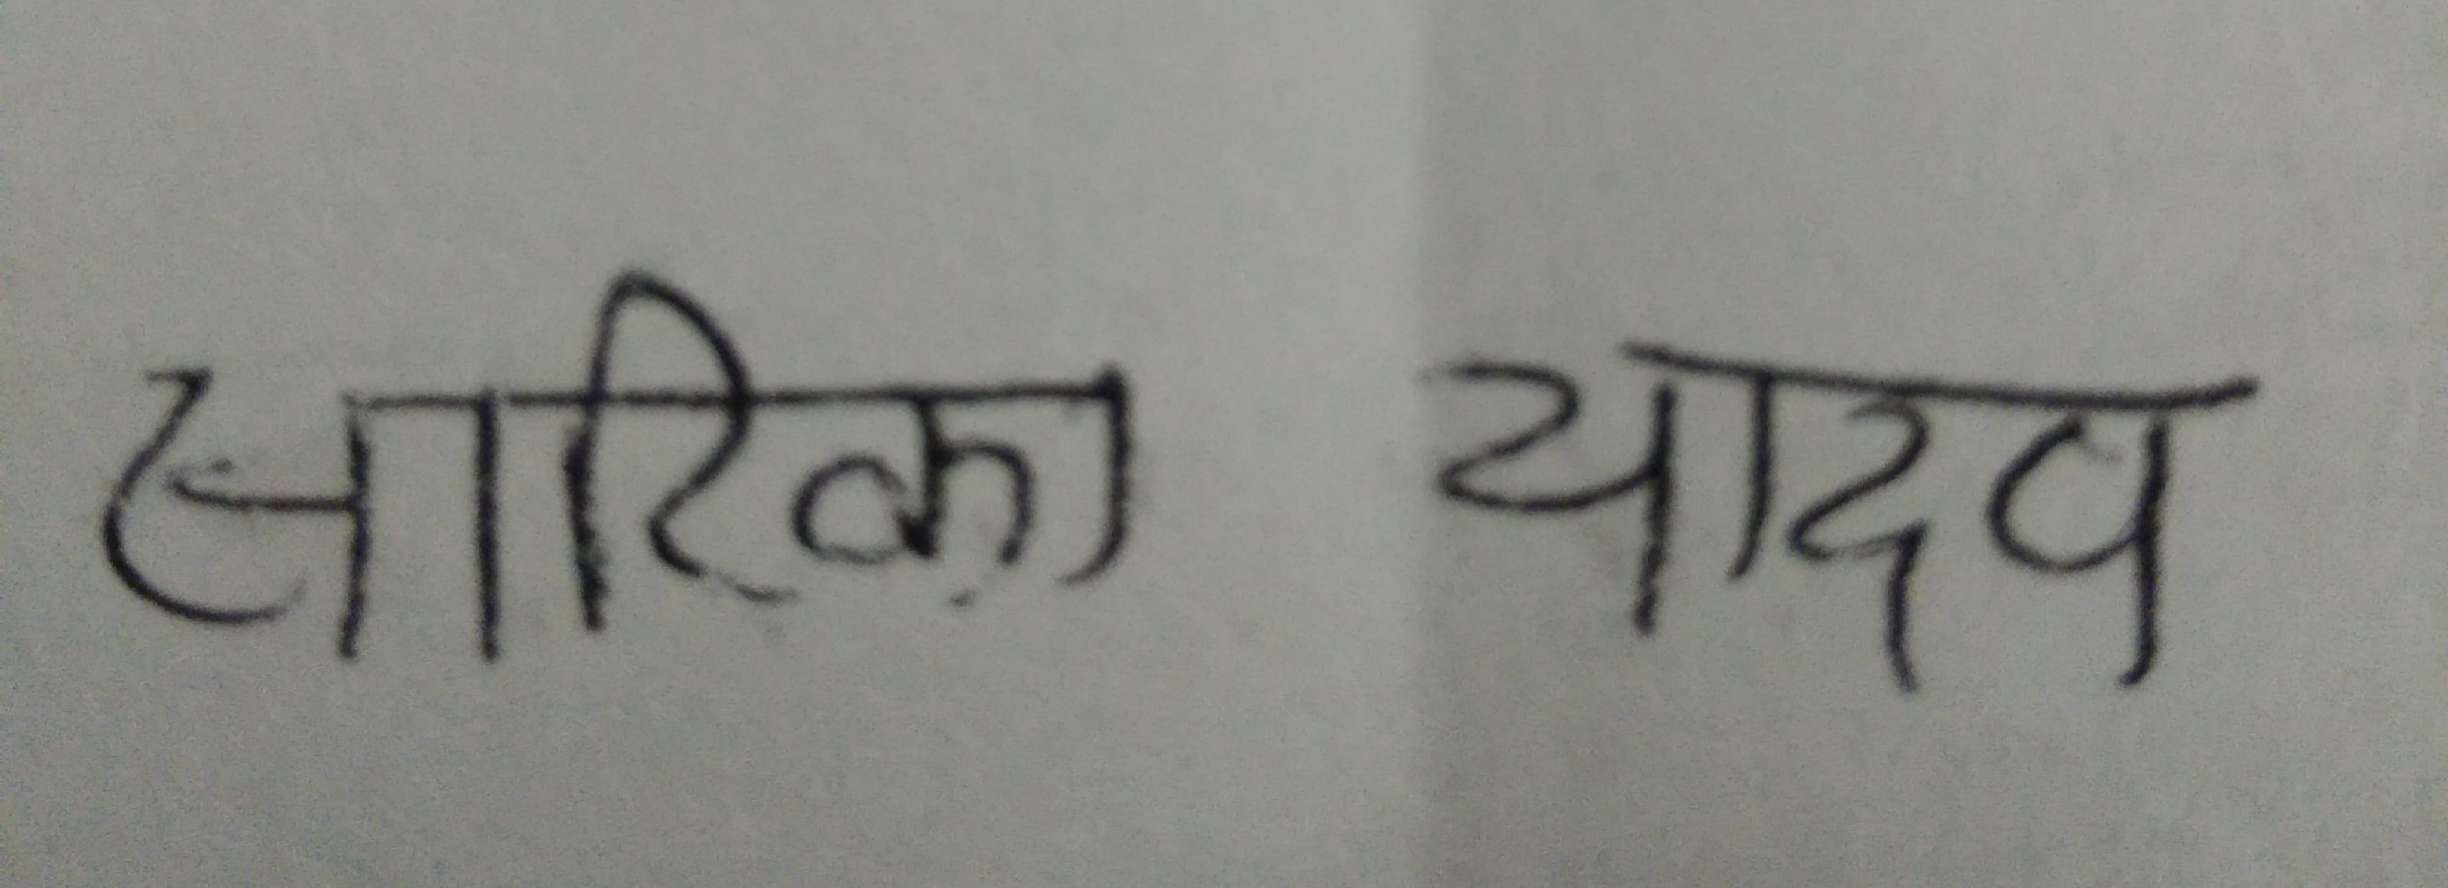 सारिका यादव